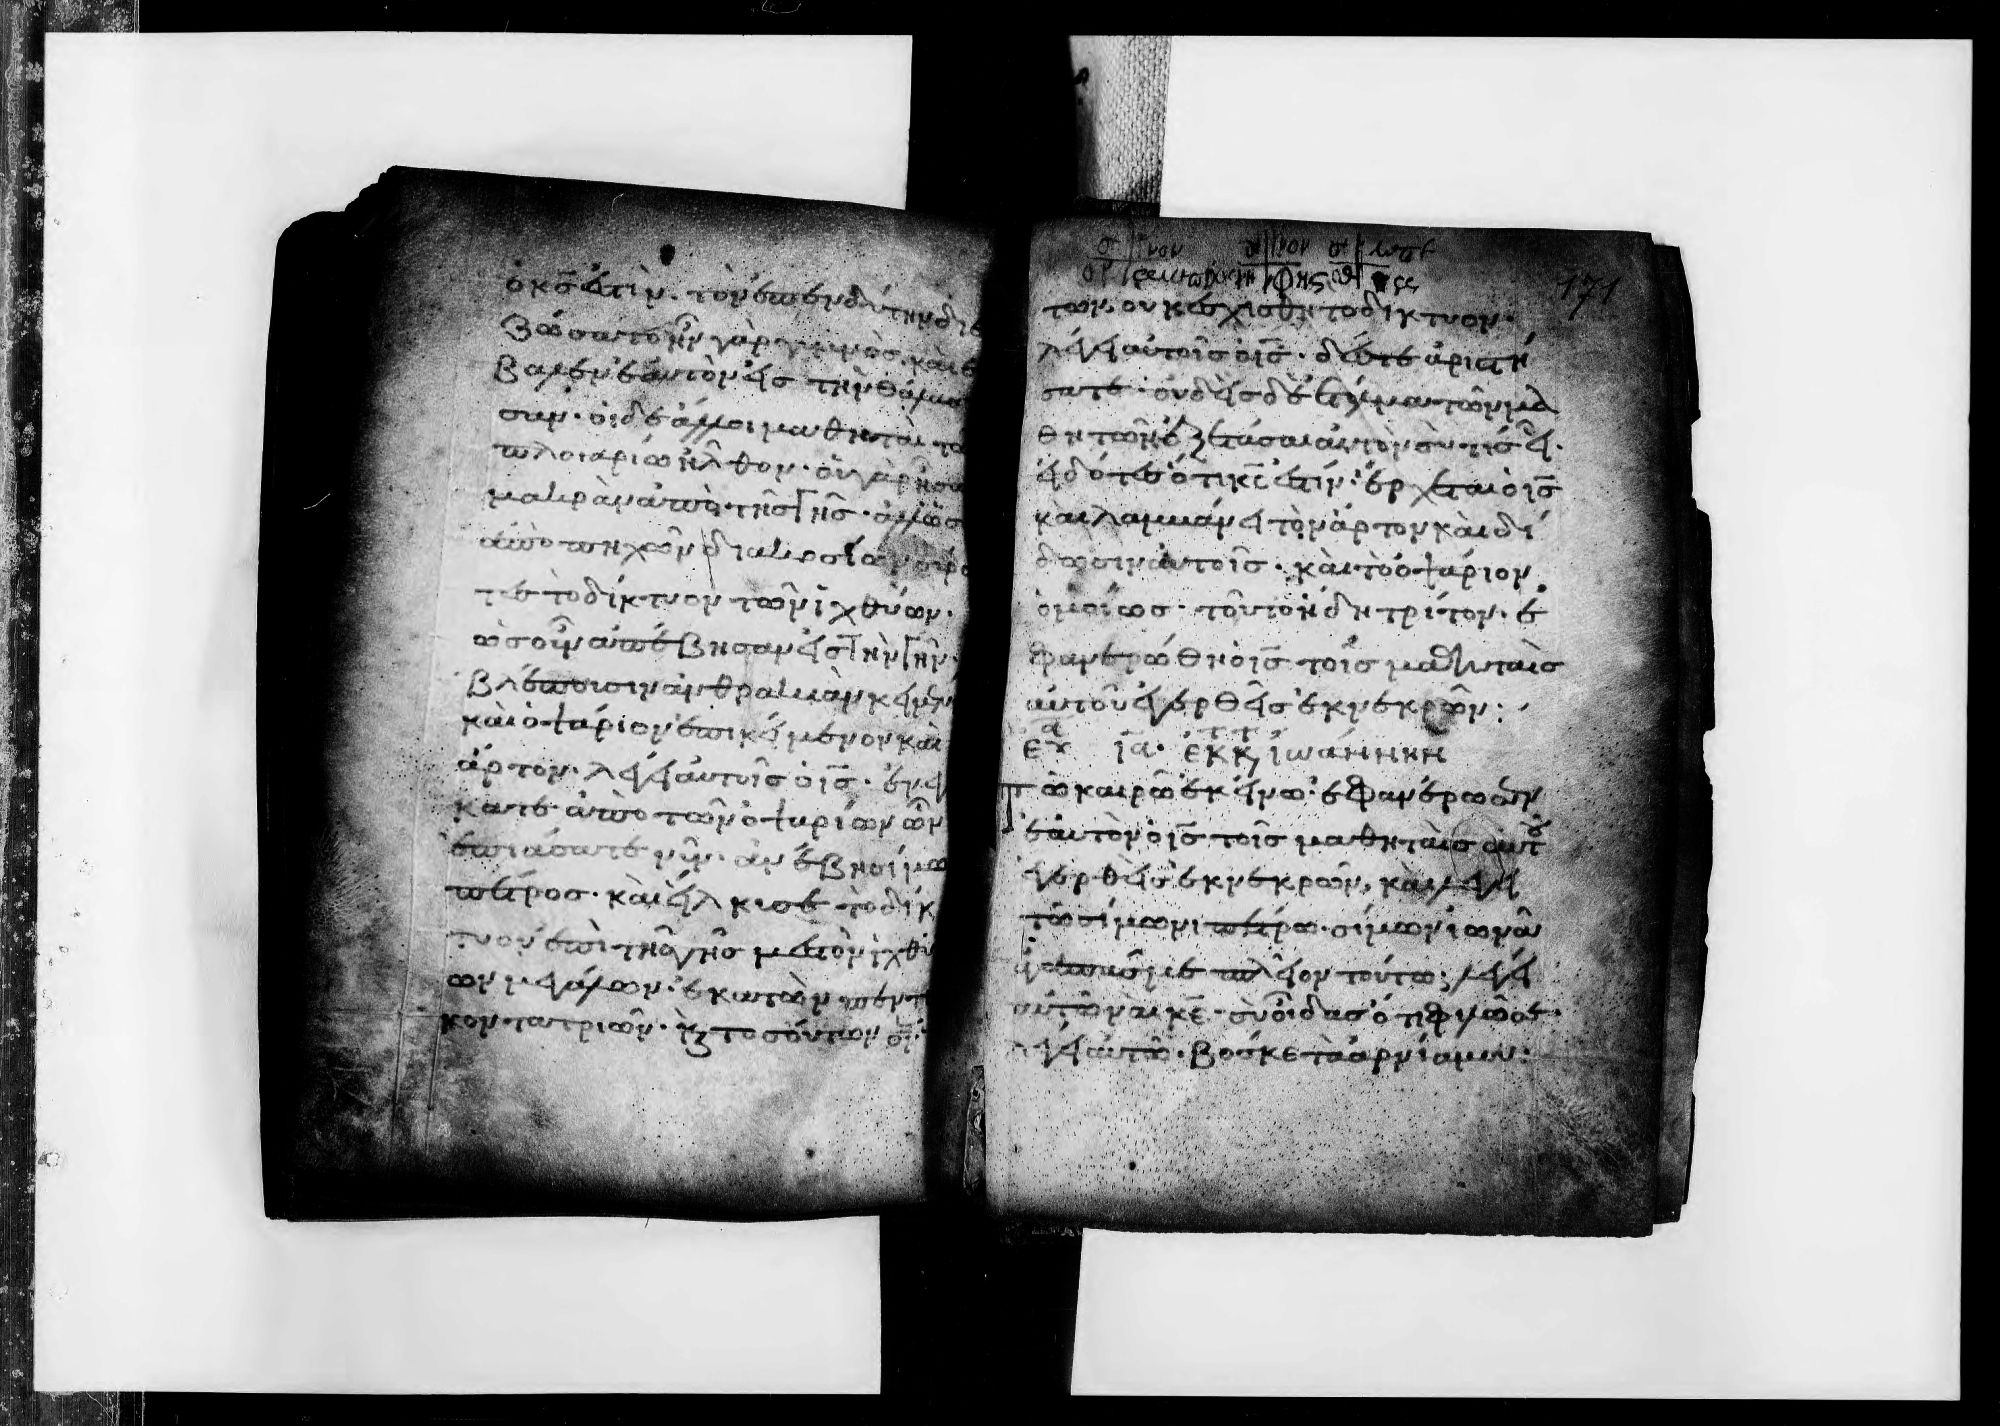 ὁ κς ἐστὶν. τὸν ἐπενδύτην διε
ζώσατο ἦν γὰρ γυμνὸς. καὶ ἔ
βαλεν ἑαυτὸν εἰς τὴν θάλασ
σαν. οἱ δὲ ἄλλοι μαθηταὶ τῶ
πλοιαρίω ἦλθον. οὐ γὰρ ἦσαν
μακρὰν ἀπὸ τῆς γῆς. ἀλλ' ὡς
ἀπὸ πηχῶν διακοσίων σύρο
τες τὸ δίκτυον τῶν ἰχθύων.
ὡς οὖν ἀπέβησαν εἰς τὴν γῆν.
βλέπουσιν ἀνθρακιὰν κειμένην
καὶ ὀψάριον ἐπικείμενον καὶ
ἄρτον. λέγει αὐτοῖς ὁ ις. ἐνέγ
κατε ἀπὸ τῶν ὀψαρίων ὧν
ἐπιάσατε νῦν. ἀνέβη σίμων
πέτρος. καὶ εἵλκυσε τὸ δίκ
τυον ἐπὶ τῆς γῆς μεστὸν ἰχθύ
ων μεγάλων. ἑκατὸν πεντή
κοντατριῶν. κ τοσούτων ὄν
171
των, οὐκ ἐσχίσθη τὸ δίκτυον.
λέγει αὐτοῖς ὁ ις. δεῦτε ἀριστή
σατε. οὐδεὶς δὲ ἐτόλμα τῶν μα
θητῶν ἐξετάσαι αὐτὸν σὺ τίς εἶ.
εἰδότες ὅτι κς ἐστίν. ἔρχεται ὁ ις
καὶ λαμβάνει τὸν ἄρτον καὶ δί
δωσιν αὐτοῖς. καὶ τὸ ὀψάριον
ὁμοίως. τοῦτο ἤδη τρίτον. ἐ
φανερώθη ὁ ις τοῖς μαθηταῖς
αὐτοῦ ἐγερθεὶς ἐκ νεκρῶν:
ευα ια. ἐκ κ ἰωάννην
Τῶ καιρῶ ἐκείνω. ἐφανέρωσεν
ἑαυτὸν ὁ ις τοῖς μαθηταῖς αὐτοῦ
ἐγερθεὶς ἐκ νεκρῶν, καὶ λέγει
τῶ σίμωνι πέτρω. σίμων ἰωνᾶ
ἀγαπᾶς με πλεῖον τούτων; λέγει
αὐτῶ ναὶ κε. σὺ οἶδας ὅτι φιλῶ σε.
λέγει αὐτῶ. βόσκε τὰ ἀρνία μου: